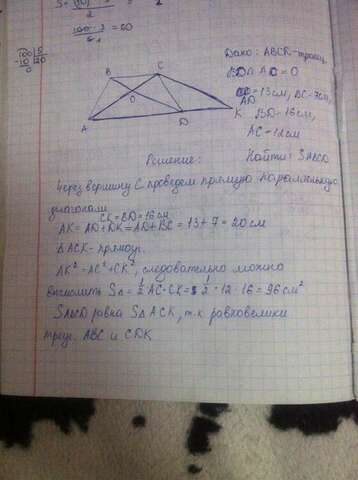 2
100 5
-10 20
0
= 60
B C
O
A D K
Дано: ABCD-трапец.
BD ∩ AC = O
AD = 13см, BC = 7см,
BD = 16см,
AC = 12см
Найти: SABCD
Решение:
Через вершину C проведем прямую параллельную
диагонали
CK = BD = 16см
AK = AD + DK = AD + BC = 13 + 7 = 20см
△ACK - прямоуг.
AK² = AC² + CK², следовательно можно
вычислить S△ = ½ AC · CK = ½ · 12 · 16 = 96см²
SABCD равна S△ACK, т.к равновелики
треуг. ABC и CDK